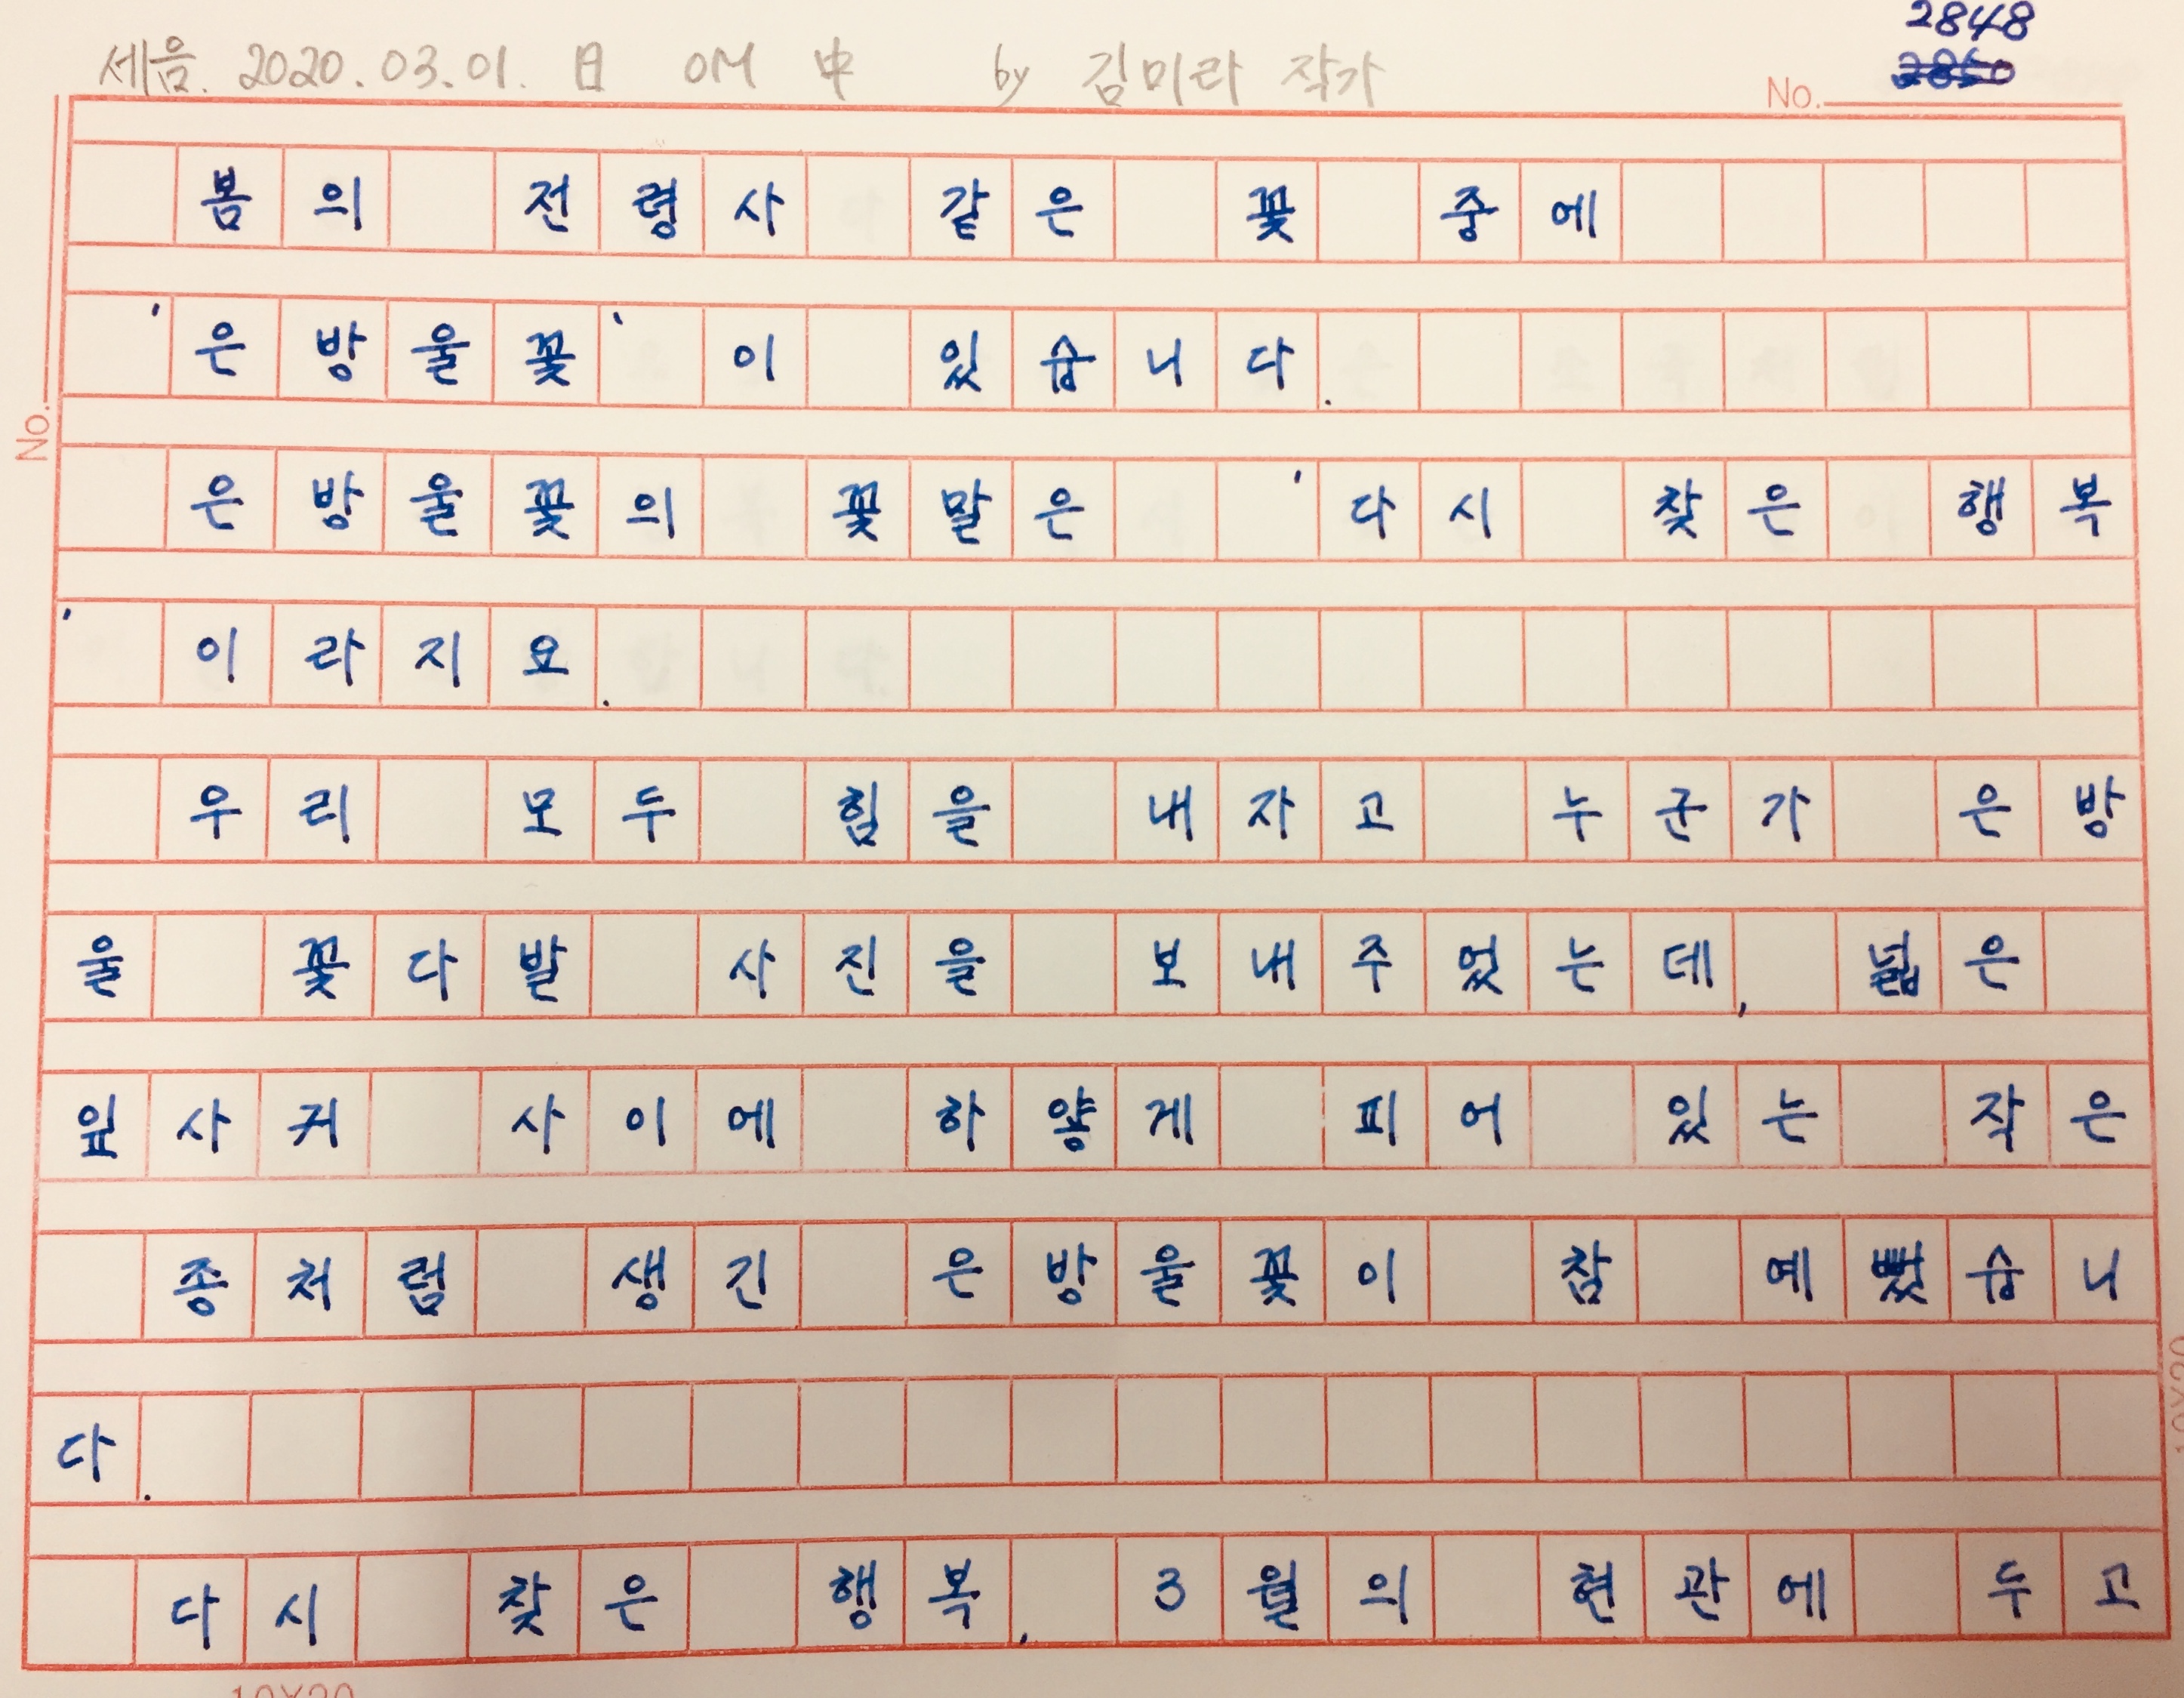 2848
세음. 2020.03.01. 日 OM 中 by 김미라 작가
No.
봄의 전령사 같은 꽃 중에
'은방울꽃'이 있습니다.
No.
은방울꽃의 꽃말은 '다시 찾은 행복
'이라지요.
우리 모두 힘을 내자고 누군가 은방
울 꽃다발 사진을 보내주었는데, 넓은
잎사귀 사이에 하얗게 피어 있는 작은
종처럼 생긴 은방울꽃이 참 예뻤습니
다.
다시 찾은 행복, 3월의 현관에 두고
10X20